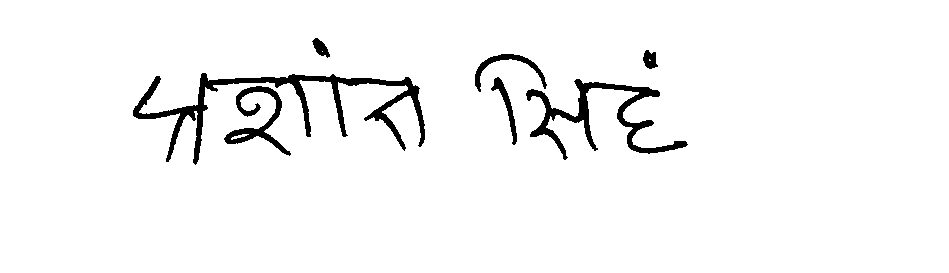 प्रशांत सिहं